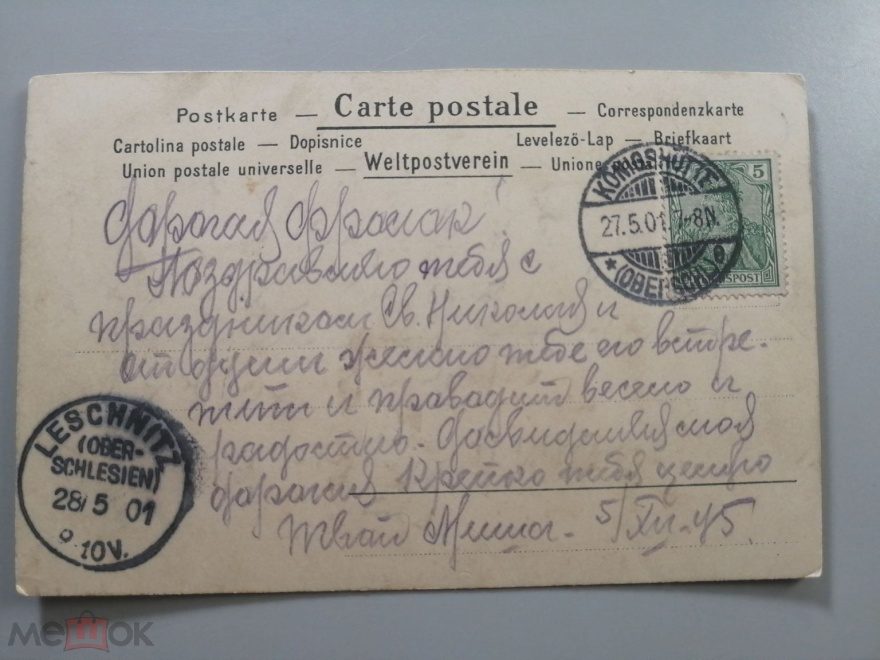 Postkarte — Carte postale — Correspondenzkarte
Cartolina postale — Dopisnice Levelező-Lap — Briefkaart
Union postale universelle — Weltpostverein — Union
KÖNIGSHÜTTE
27.5.01 7-8N.
* (OBERSCHL)
5
Дарогая
Поздравляю тебя с
праздником Св. Николая и
от души желаю тебе его встре-
тить и правадит весело и
радостно. Досвидания моя
дарогая Крепко тебя целую
Твай Миша. 5/XII-45.
LESCHNITZ
(OBER-
SCHLESIEN)
28/5 01
10V.
мешок